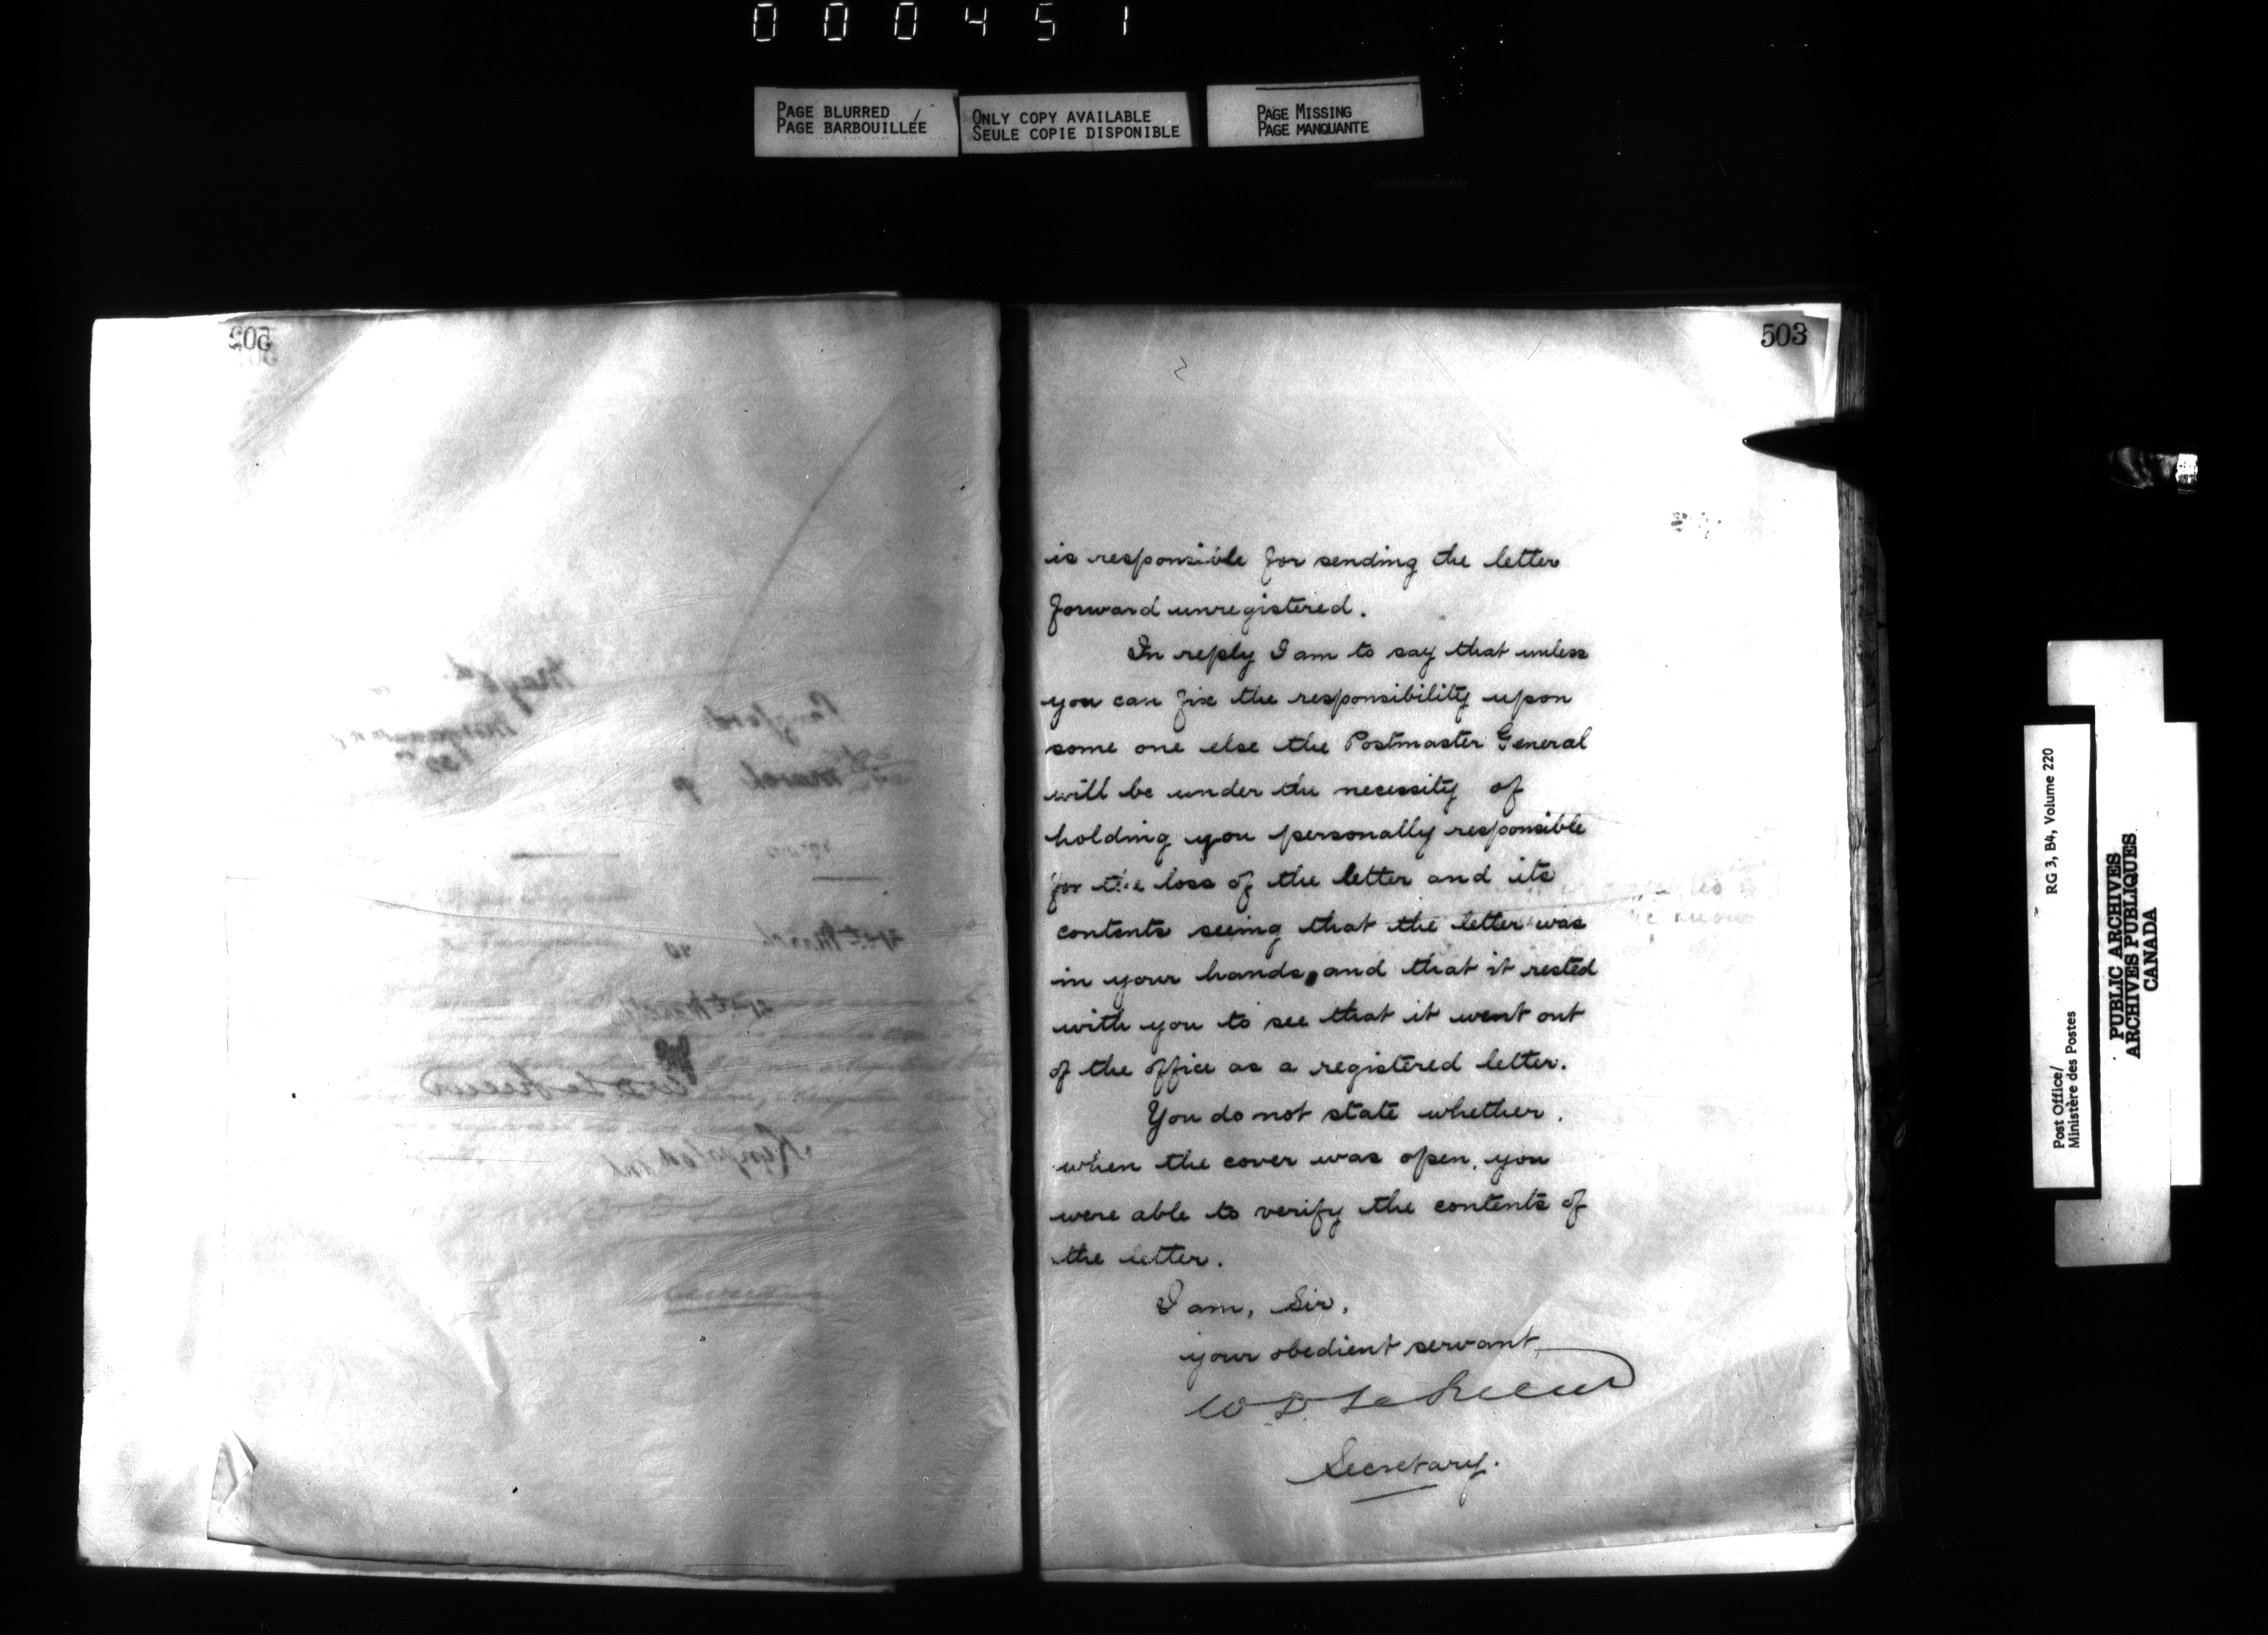 000451
PAGE BLURRED
PAGE BARBOUILLÉE
ONLY COPY AVAILABLE
SEULE COPIE DISPONIBLE
PAGE MISSING
PAGE MANQUANTE
502
503
2
is responsible for sending the letter
forward unregistered.
In reply I am to say that unless
you can fix the responsibility upon
some one else the Postmaster General
will be under the necessity of
holding you personally responsible
for the loss of the letter and its
contents seeing that the letter was
in your hands, and that it rested
with you to see that it went out
of the office as a registered letter.
You do not state whether,
when the cover was open, you
were able to verify the contents of
the letter.
I am, Sir,
your obedient servant,
W D LeSueur
Secretary.
Post Office/
Ministère des Postes
RG 3, B4, Volume 220
PUBLIC ARCHIVES
ARCHIVES PUBLIQUES
CANADA